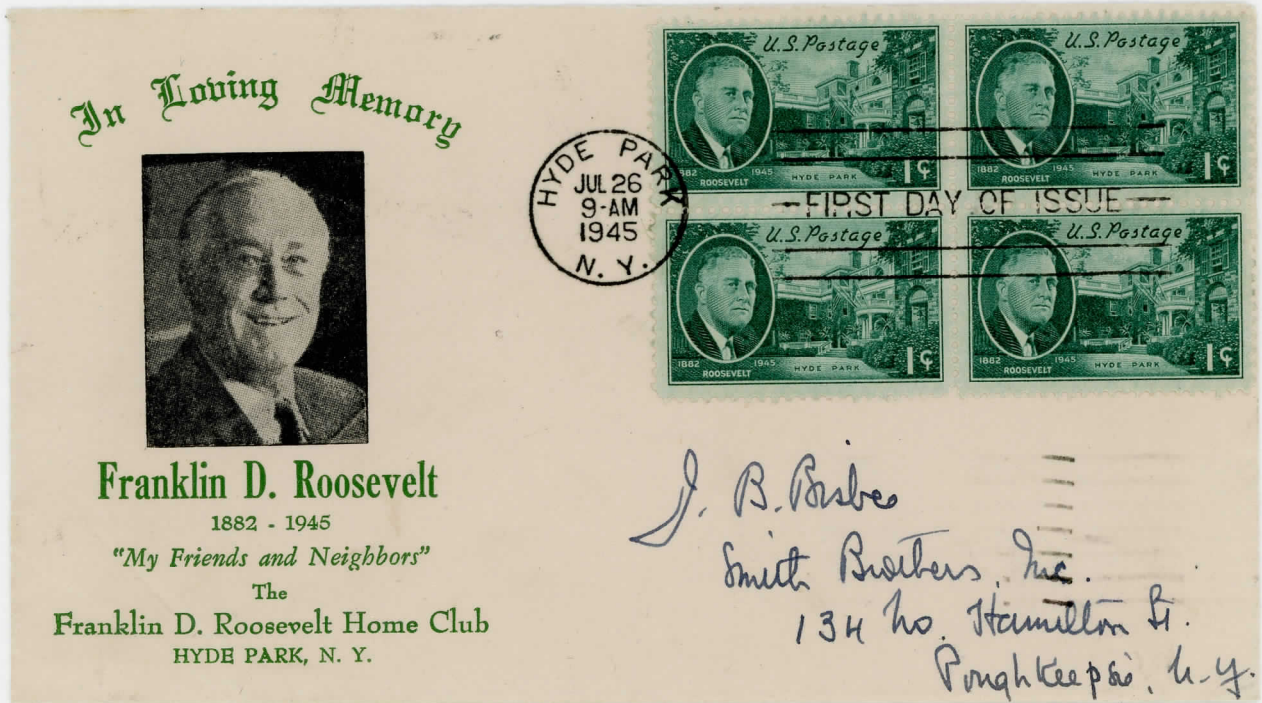 In Loving Memory
Franklin D. Roosevelt
1882 - 1945
"My Friends and Neighbors"
The
Franklin D. Roosevelt Home Club
HYDE PARK, N. Y.
HYDE PARK
JUL 26
9-AM
1945
N. Y.
FIRST DAY OF ISSUE
U.S. Postage
1882 1945
ROOSEVELT HYDE PARK 1¢
U.S. Postage
1882 1945
ROOSEVELT HYDE PARK 1¢
U.S. Postage
1882 1945
ROOSEVELT HYDE PARK 1¢
U.S. Postage
1882 1945
ROOSEVELT HYDE PARK 1¢
J. B. Bisbee
Smith Brothers, Inc.
134 No. Hamilton St.
Poughkeepsie, N.Y.